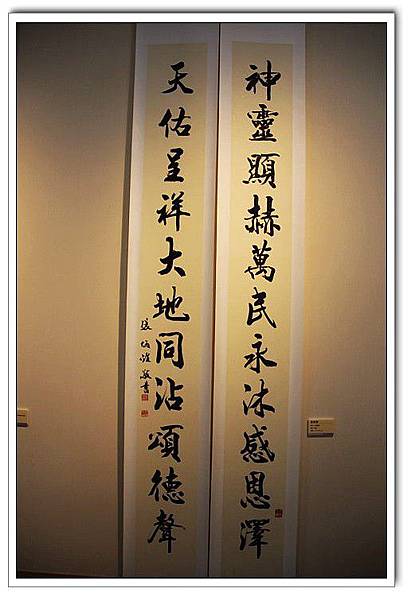 神靈顯赫萬民永沐感恩澤
天佑呈祥大地同沾頌德聲